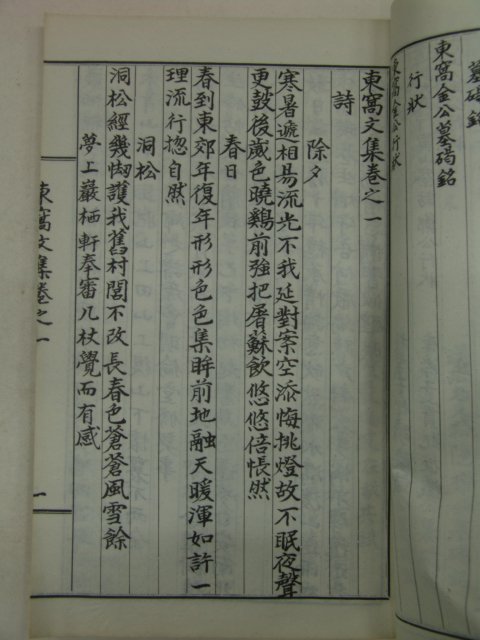 墓碣銘
東窩金公墓碣銘
行狀
東窩金公行狀
東窩文集卷之一
詩
除夕
寒暑遞相易流光不我延對案空添悔挑燈故不眠夜聲
更鼓後歲色曉鷄前強把屠蘇飲悠悠倍悵然
春日
春到東郊年復年形形色色集眸前地融天暖渾如許一
理流行揔自然
洞松
洞松經幾刼護我舊村閭不改長春色蒼蒼風雪餘
夢上巖栖軒奉審几杖覺而有感
東窩文集卷之一
一